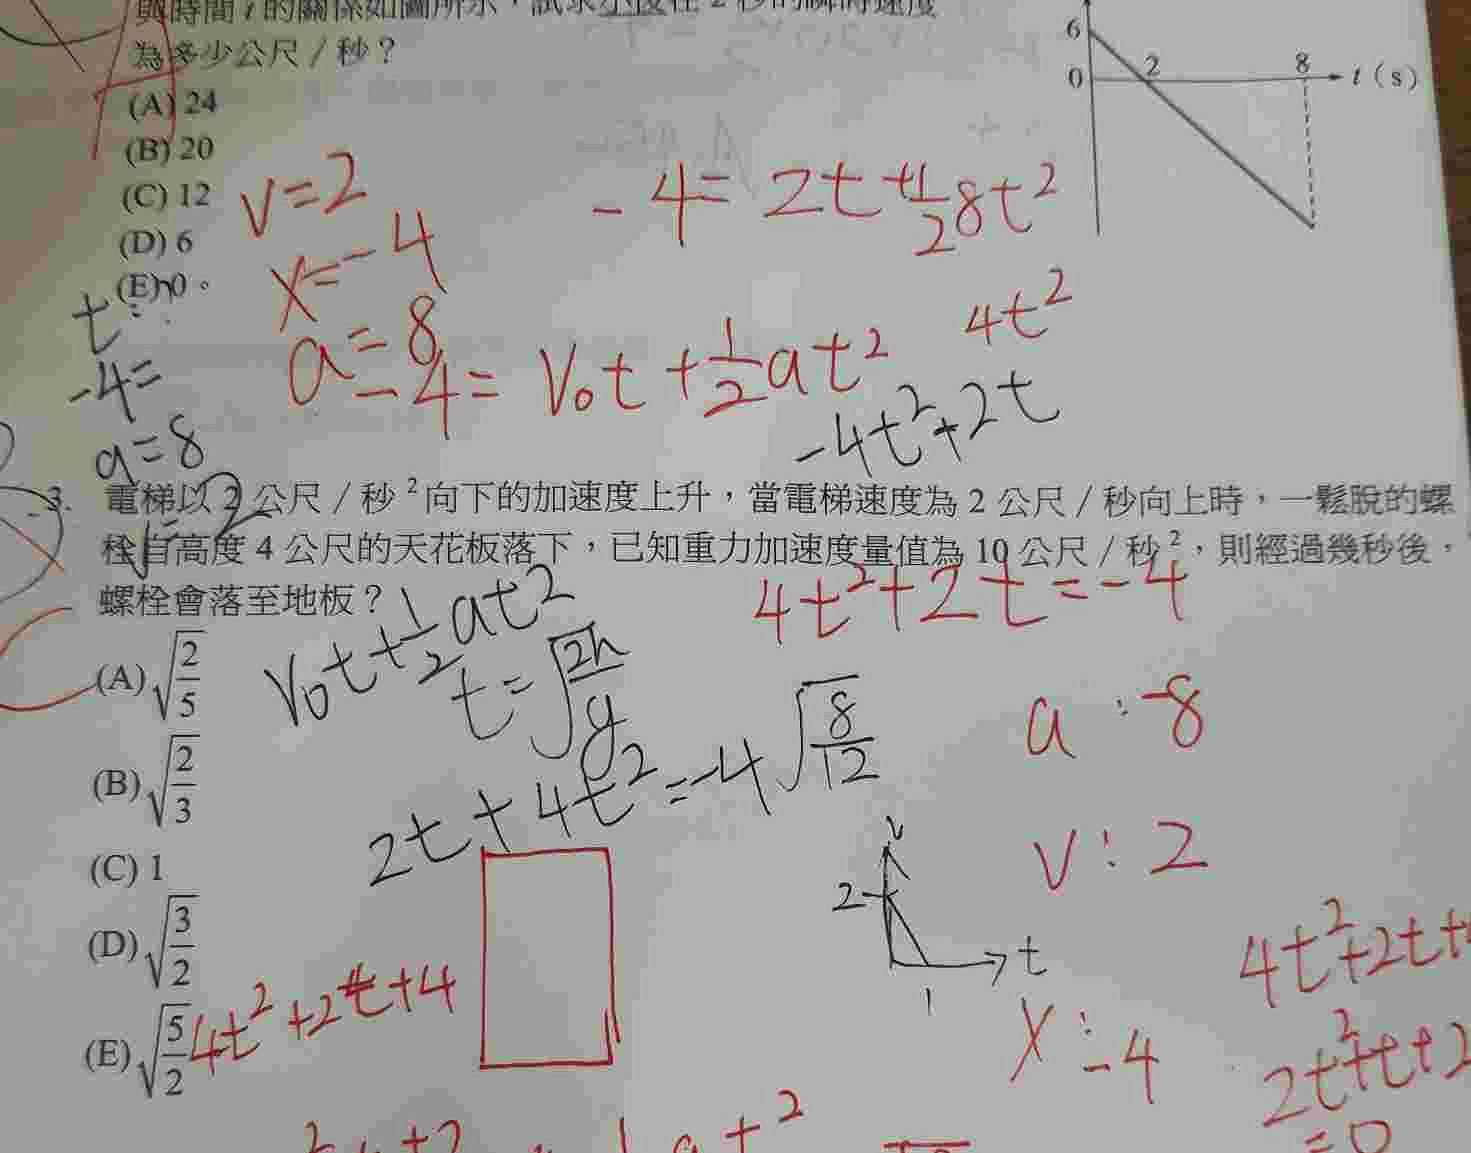 與時間 t 的關係如圖所示，試求小茂在 2 秒的瞬時速度
為多少公尺／秒？
(A) 24
(B) 20
(C) 12
(D) 6
(E) 0。
6
0
2
8
t (s)
v=2
x=-4
a=8
-4= 2t+½8t²
t:
-4=
a=8
-4= V₀t+½at²
4t²
-4t²+2t
3. 電梯以 2 公尺／秒²向下的加速度上升，當電梯速度為 2 公尺／秒向上時，一鬆脫的螺
栓自高度 4 公尺的天花板落下，已知重力加速度量值為 10 公尺／秒²，則經過幾秒後，
螺栓會落至地板？
(A) √(2/5)
(B) √(2/3)
(C) 1
(D) √(3/2)
(E) √(5/2)
V₀t+½at²
t=√(2h/g)
4t²+2t=-4
2t+4t²=-4
√(8/12)
a:-8
v:2
x:-4
v
2
t
1
4t²+2t+4
4t²+2t+
2t²+t+2
=0